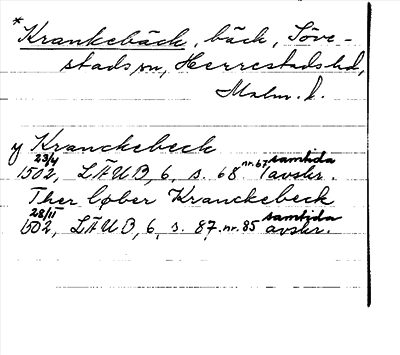 *Krankebäck, bäck, Söve-
stads sn, Herrestads hd,
Malm. l.
y Kranckebeck
23/4 1502, LÄUB, 6, s. 68 nr. 67 samtida avskr.
Ther løber Kranckebeck
28/11 1502, LÄUB, 6, s. 87, nr. 85 samtida avskr.